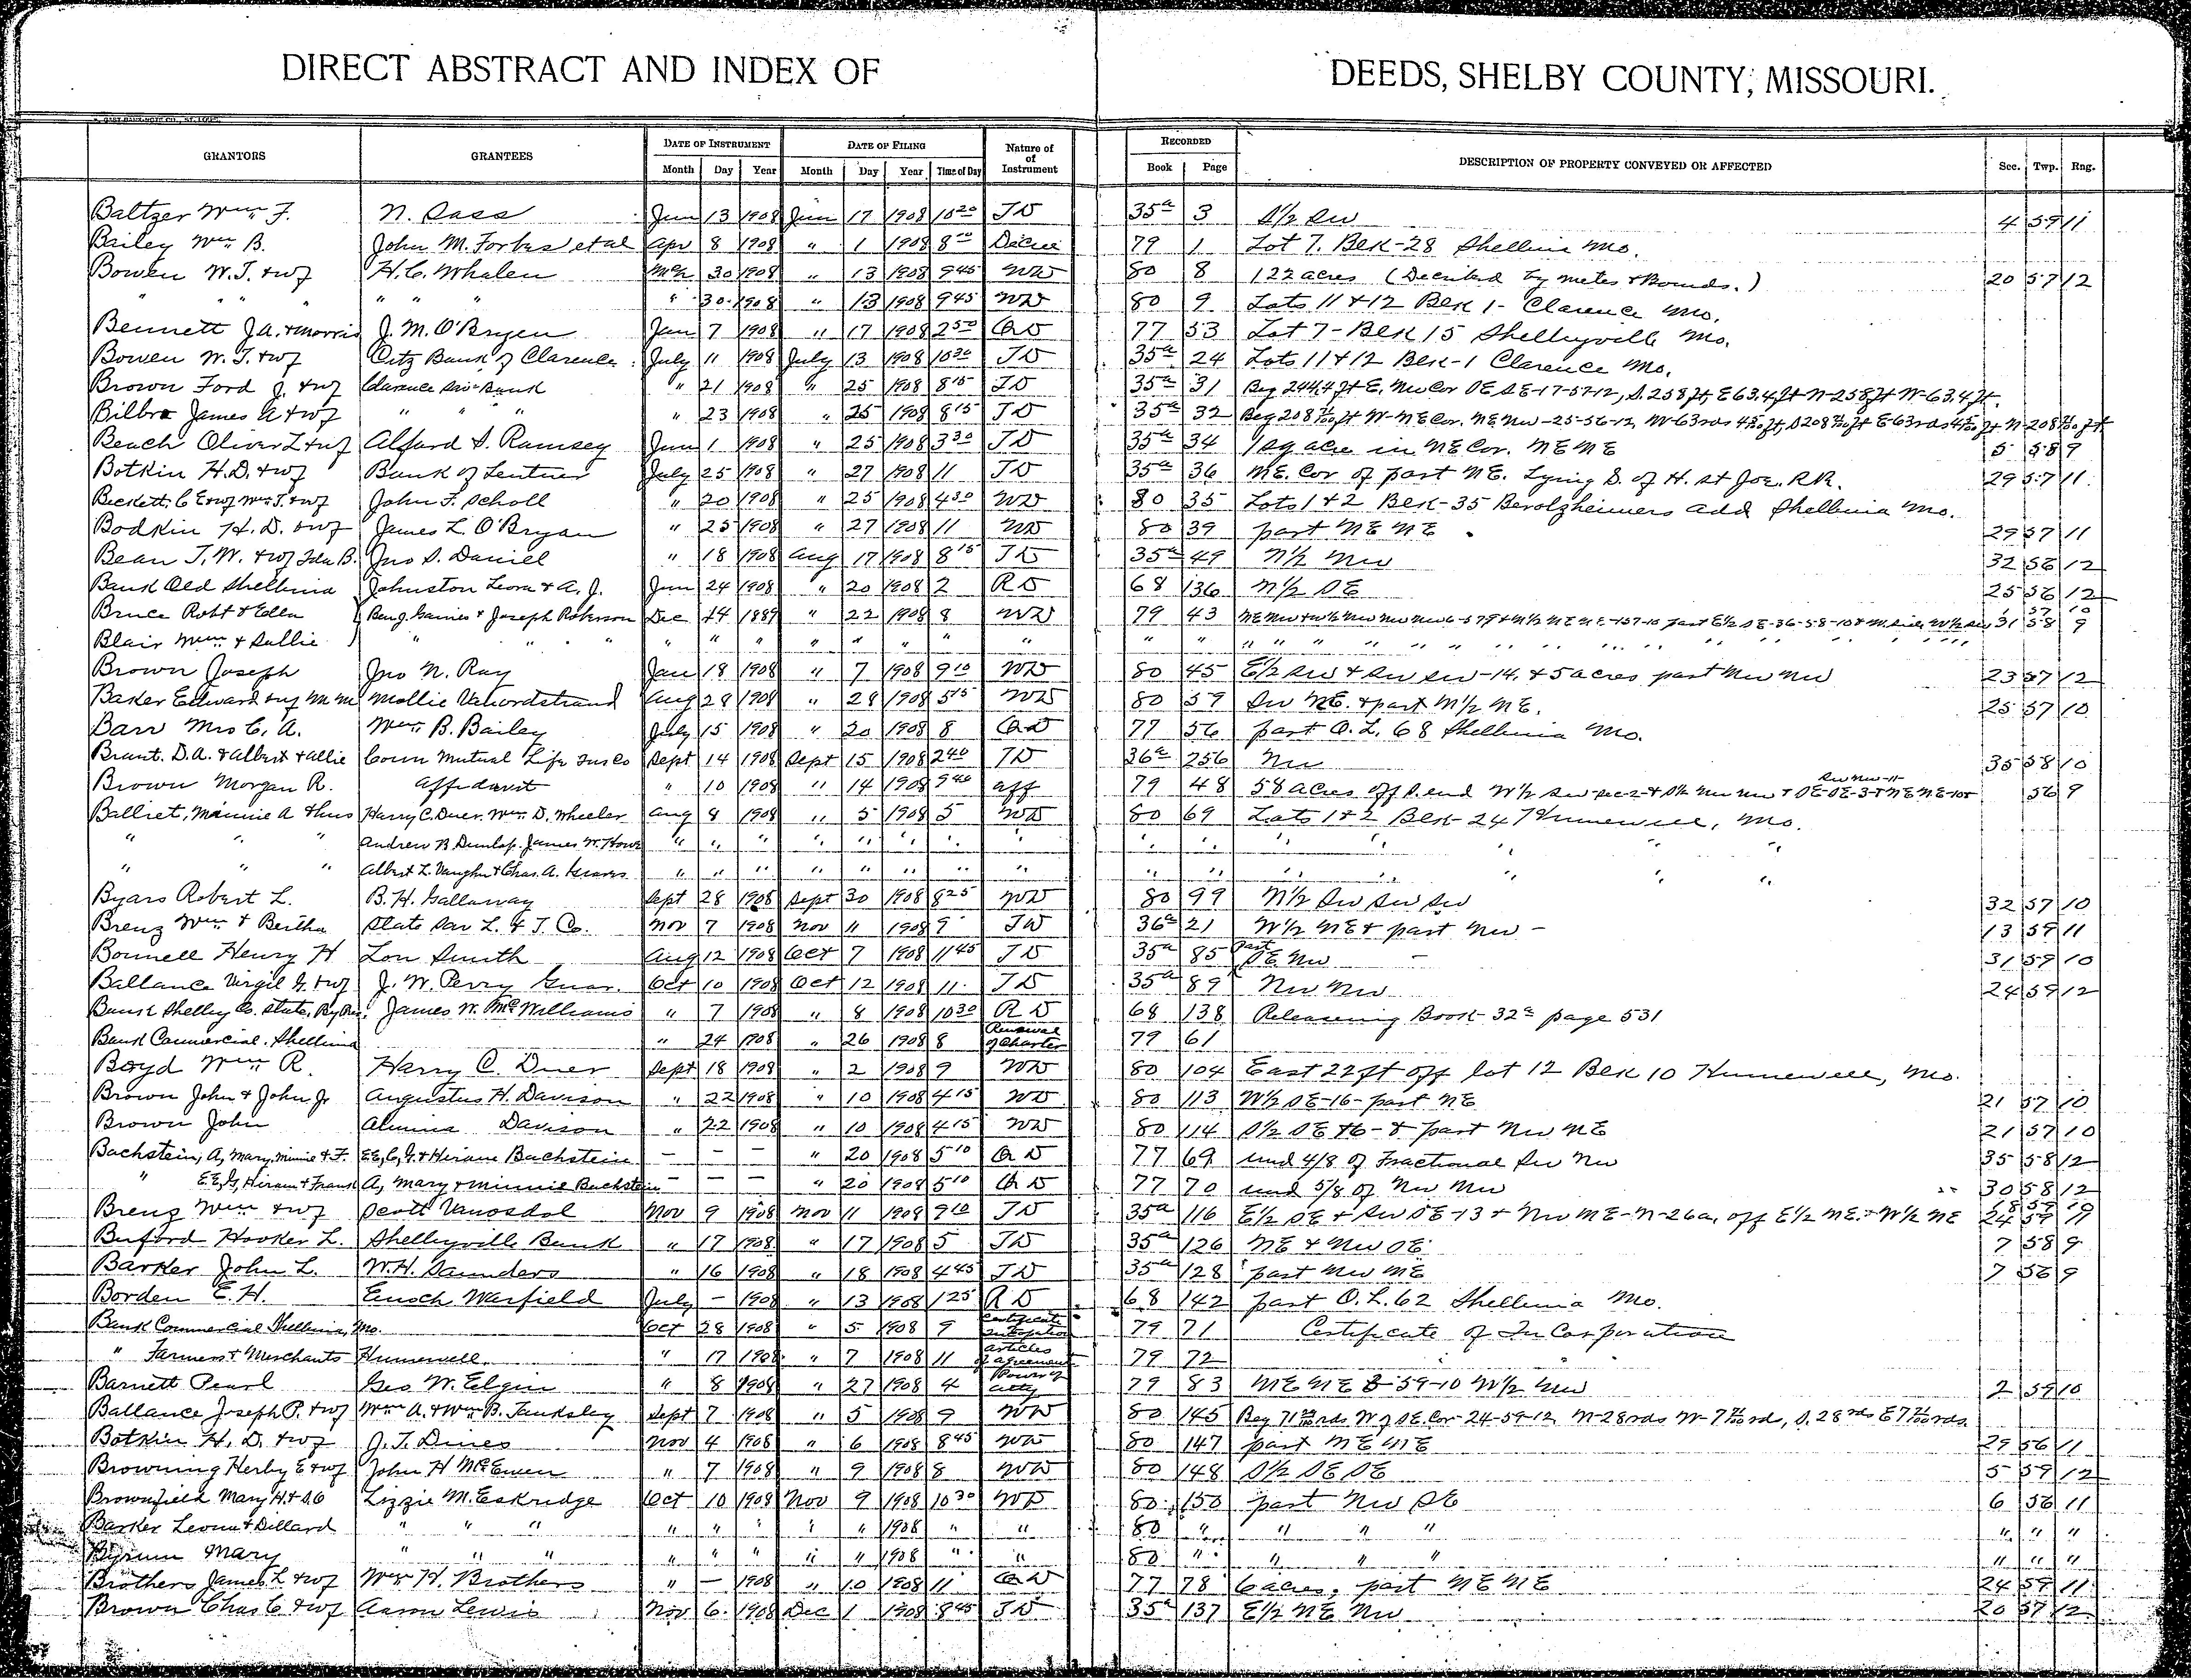 DIRECT ABSTRACT AND INDEX OF DEEDS, SHELBY COUNTY, MISSOURI.
GRANTORS GRANTEES DATE OF INSTRUMENT DATE OF FILING Nature of Instrument RECORDED DESCRIPTION OF PROPERTY CONVEYED OR AFFECTED Sec. Twp. Rng.
Month Day Year Month Day Year Time of Day Book Page
Baltzer Wm F. N. Sass Jun 13 1908 Jun 17 1908 10 20 TD 35a 3 S½ SW 4 59 11
Bailey Wm B. John M. Forbes et al Apr 8 1908 " 1 1908 8 Decree 79 1 Lot 7. Blk-28 Shelbina Mo.
Bowen W.T. & wf H.C. Whalen Mch 30 1908 " 13 1908 9 45 WD 80 8 122 acres (Described by metes & Bounds.) 20 57 12
" " " " " " " 30 1908 " 13 1908 9 45 WD 80 9 Lots 11 & 12 Blk 1- Clarence Mo.
Bennett J.A. & Morris J. M. O'Bryen Jan 7 1908 " 17 1908 2 50 QD 77 53 Lot 7- Blk 15 Shelbyville Mo.
Bowen W. T. & wf Citz Bank of Clarence July 11 1908 July 13 1908 10 30 TD 35a 24 Lots 11 & 12 Blk-1 Clarence Mo.
Brown Ford J. & wf Clarence Sav Bank " 21 1908 " 25 1908 8 15 TD 35a 31 Beg 244.4 ft E. NW Cor SE SE-17-57-12, S. 258 ft, E 63.4 ft N-258 ft W-63.4 ft.
Bilbro James A & wf " " " " 23 1908 " 25 1908 8 15 TD 35a 32 Beg 208 ft W-NE Cor. NE NW-25-56-12
Beach Oliver L & wf Alford S. Ramsey Jun 1 1908 " 25 1908 3 30 TD 35a 34 1 sq acre in NE Cor. NE NE 5 58 9
Botkin H.D. & wf Bank of Lentner July 25 1908 " 27 1908 11 TD 35a 36 NE. Cor of part NE. Lying S. of H. St Joe. RR. 29 57 11
Beckett, C E & wf Wm T. & wf John F. Scholl " 20 1908 " 25 1908 4 30 WD 80 35 Lots 1 & 2 Blk-35 Berolzheimers add Shelbina Mo.
Bodkin H. D. & wf James L. O'Bryan " 25 1908 " 27 1908 11 WD 80 39 part NE NE 29 57 11
Bean T. W. & wf Ida B. Jno S. Daniel " 18 1908 Aug 17 1908 8 15 TD 35a 49 N½ NW 32 56 12
Bank Old Shelbina Johnston Leora & A. J. Jun 24 1908 " 20 1908 2 RD 68 136 N½ SE 25 56 12
Bruce Robt & Ellen Benj. Gaines & Joseph Roberson Dec 14 1889 " 22 1908 8 WD 79 43 31 58 9
Blair Wm & Sallie " " " " " " " " " " " " "
Brown Joseph Jno N. Ray Jan 18 1908 " 7 1908 9 10 WD 80 45 E½ SW & SW SW-14. & 5 acres part NW NW 23 57 12
Baker Edward & wf M M Mollie Vanordstrand Aug 28 1908 " 28 1908 5 15 WD 80 59 SW NE. & part N½ NE. 25 57 10
Barr Mrs C. A. Wm B. Bailey July 15 1908 " 20 1908 8 QD 77 56 part O.L. 68 Shelbina Mo.
Brant. D.A. & Albert & Allie Conn Mutual Life Ins Co Sept 14 1908 Sept 15 1908 2 40 TD 36a 256 NW 35 58 10
Brown Morgan R. Affidavit " 10 1908 " 14 1908 9 40 aff 79 48 58 acres off S. end W½ SW-Sec-2 & S½ NW NW SW NW-11 & SE-SE-3 & NE NE-10 56 9
Balliet, Minnie A & hus Harry C. Duer. Wm. D. Wheeler Aug 8 1908 " 5 1908 5 WD 80 69 Lots 1 & 2 Blk-24 Hunnewell, Mo.
" " " Andrew B. Dunlap. James W. Howe " " " " " " " " " " " " "
" " " Albert L. Vaughn & Chas. A. Graves " " " " " " " " " " " " "
Byars Robert L. B. H. Gallaway Sept 28 1908 Sept 30 1908 8 25 WD 80 99 N½ SW SW SW 32 57 10
Brenz Wm & Bertha State Sav L. & T. Co. Nov 7 1908 Nov 11 1908 9 TD 36a 21 W½ NE & part NW - 13 59 11
Bonnell Henry H Lon Smith Aug 12 1908 Oct 7 1908 11 45 TD 35a 85 Part SE NW 31 59 10
Ballance Virgil G. & wf J. W. Perry Guar. Oct 10 1908 Oct 12 1908 11 TD 35a 89 NW NW 24 59 12
Bank Shelby Co. State, By James W. McWilliams " 7 1908 " 8 1908 10 30 RD 68 138 Releasing Book-32a page 531
Bank Commercial. Shelbina " 24 1908 " 26 1908 8 Renewal of Charter 79 61
Boyd Wm R. Harry C. Duer Sept 18 1908 " 2 1908 9 WD 80 104 East 22 ft off lot 12 Blk 10 Hunnewell, Mo.
Brown John & John Jr Augustus H. Davison " 22 1908 " 10 1908 4 15 WD 80 113 W½ SE-16- part NE 21 57 10
Brown John Almina Davison " 22 1908 " 10 1908 4 15 WD 80 114 S½ SE 16- & part NW NE 21 57 10
Bachstein, A, Mary, Minnie & F. E.E, C, G. & Hiram Bachstein - - - " 20 1908 5 10 QD 77 69 und 4/8 of Fractional SW NW 35 58 12
" E.E, G, Hiram & Frank A, Mary & Minnie Bachstein - - - " 20 1908 5 10 QD 77 70 und 5/8 of NW NW 30 58 12
Breng Wm & wf Scott Vanosdol Nov 9 1908 Nov 11 1908 9 10 TD 35a 116 E½ SE & SW SE-13 & NW NE-N-26a. off E½ NE. & W½ NE 24 59 11
Buford Hooker L. Shelbyville Bank " 17 1908 " 17 1908 5 TD 35a 126 NE & NW SE 7 58 9
Barker John L. W.H. Saunders " 16 1908 " 18 1908 4 45 TD 35a 128 part NW NE 7 56 9
Borden E. H. Enoch Warfield July - 1908 " 13 1908 1 25 RD 68 142 part O.L. 62 Shelbina Mo.
Bank Commercial Shelbina, Mo. Oct 28 1908 " 5 1908 9 Certificate 79 71 Certificate of InCorporation
" Farmers & Merchants Hunnewell " 17 1908 " 7 1908 11 articles of agreement 79 72
Barnett Pearl Geo W. Elgin " 8 1908 " 27 1908 4 Power of Atty 79 83 NE NE 3-59-10 W½ NW 2 59 10
Ballance Joseph P. & wf Wm A. & Wm B. Tanksley Sept 7 1908 " 5 1908 9 WD 80 145 Beg 71 rds W of SE. Cor-24-59-12 N-28 rds W-7 rds, S. 28 rds E 7 rds.
Botkin H. D. & wf J. T. Dines Nov 4 1908 " 6 1908 8 45 WD 80 147 part NE NE 29 56 11
Browning Herby E & wf John H McEwen " 7 1908 " 9 1908 8 WD 80 148 S½ SE SE 5 59 12
Brownfield Mary H. & S.C Lizzie M. Eskridge Oct 10 1908 Nov 9 1908 10 30 WD 80 150 part NW SE 6 56 11
Barker Leona & Dillard " " " " " " " " 1908 " " 80 " " " " " " "
Byrum Mary " " " " " " " " 1908 " " 80 " " " " " " "
Brothers James L & wf Wm H. Brothers " - 1908 " 10 1908 11 QD 77 78 6 acres, part NE NE 24 59 11
Brown Chas C & wf Aaron Lewis Nov 6 1908 Dec 1 1908 8 45 TD 35a 137 E½ NE NW 20 57 12